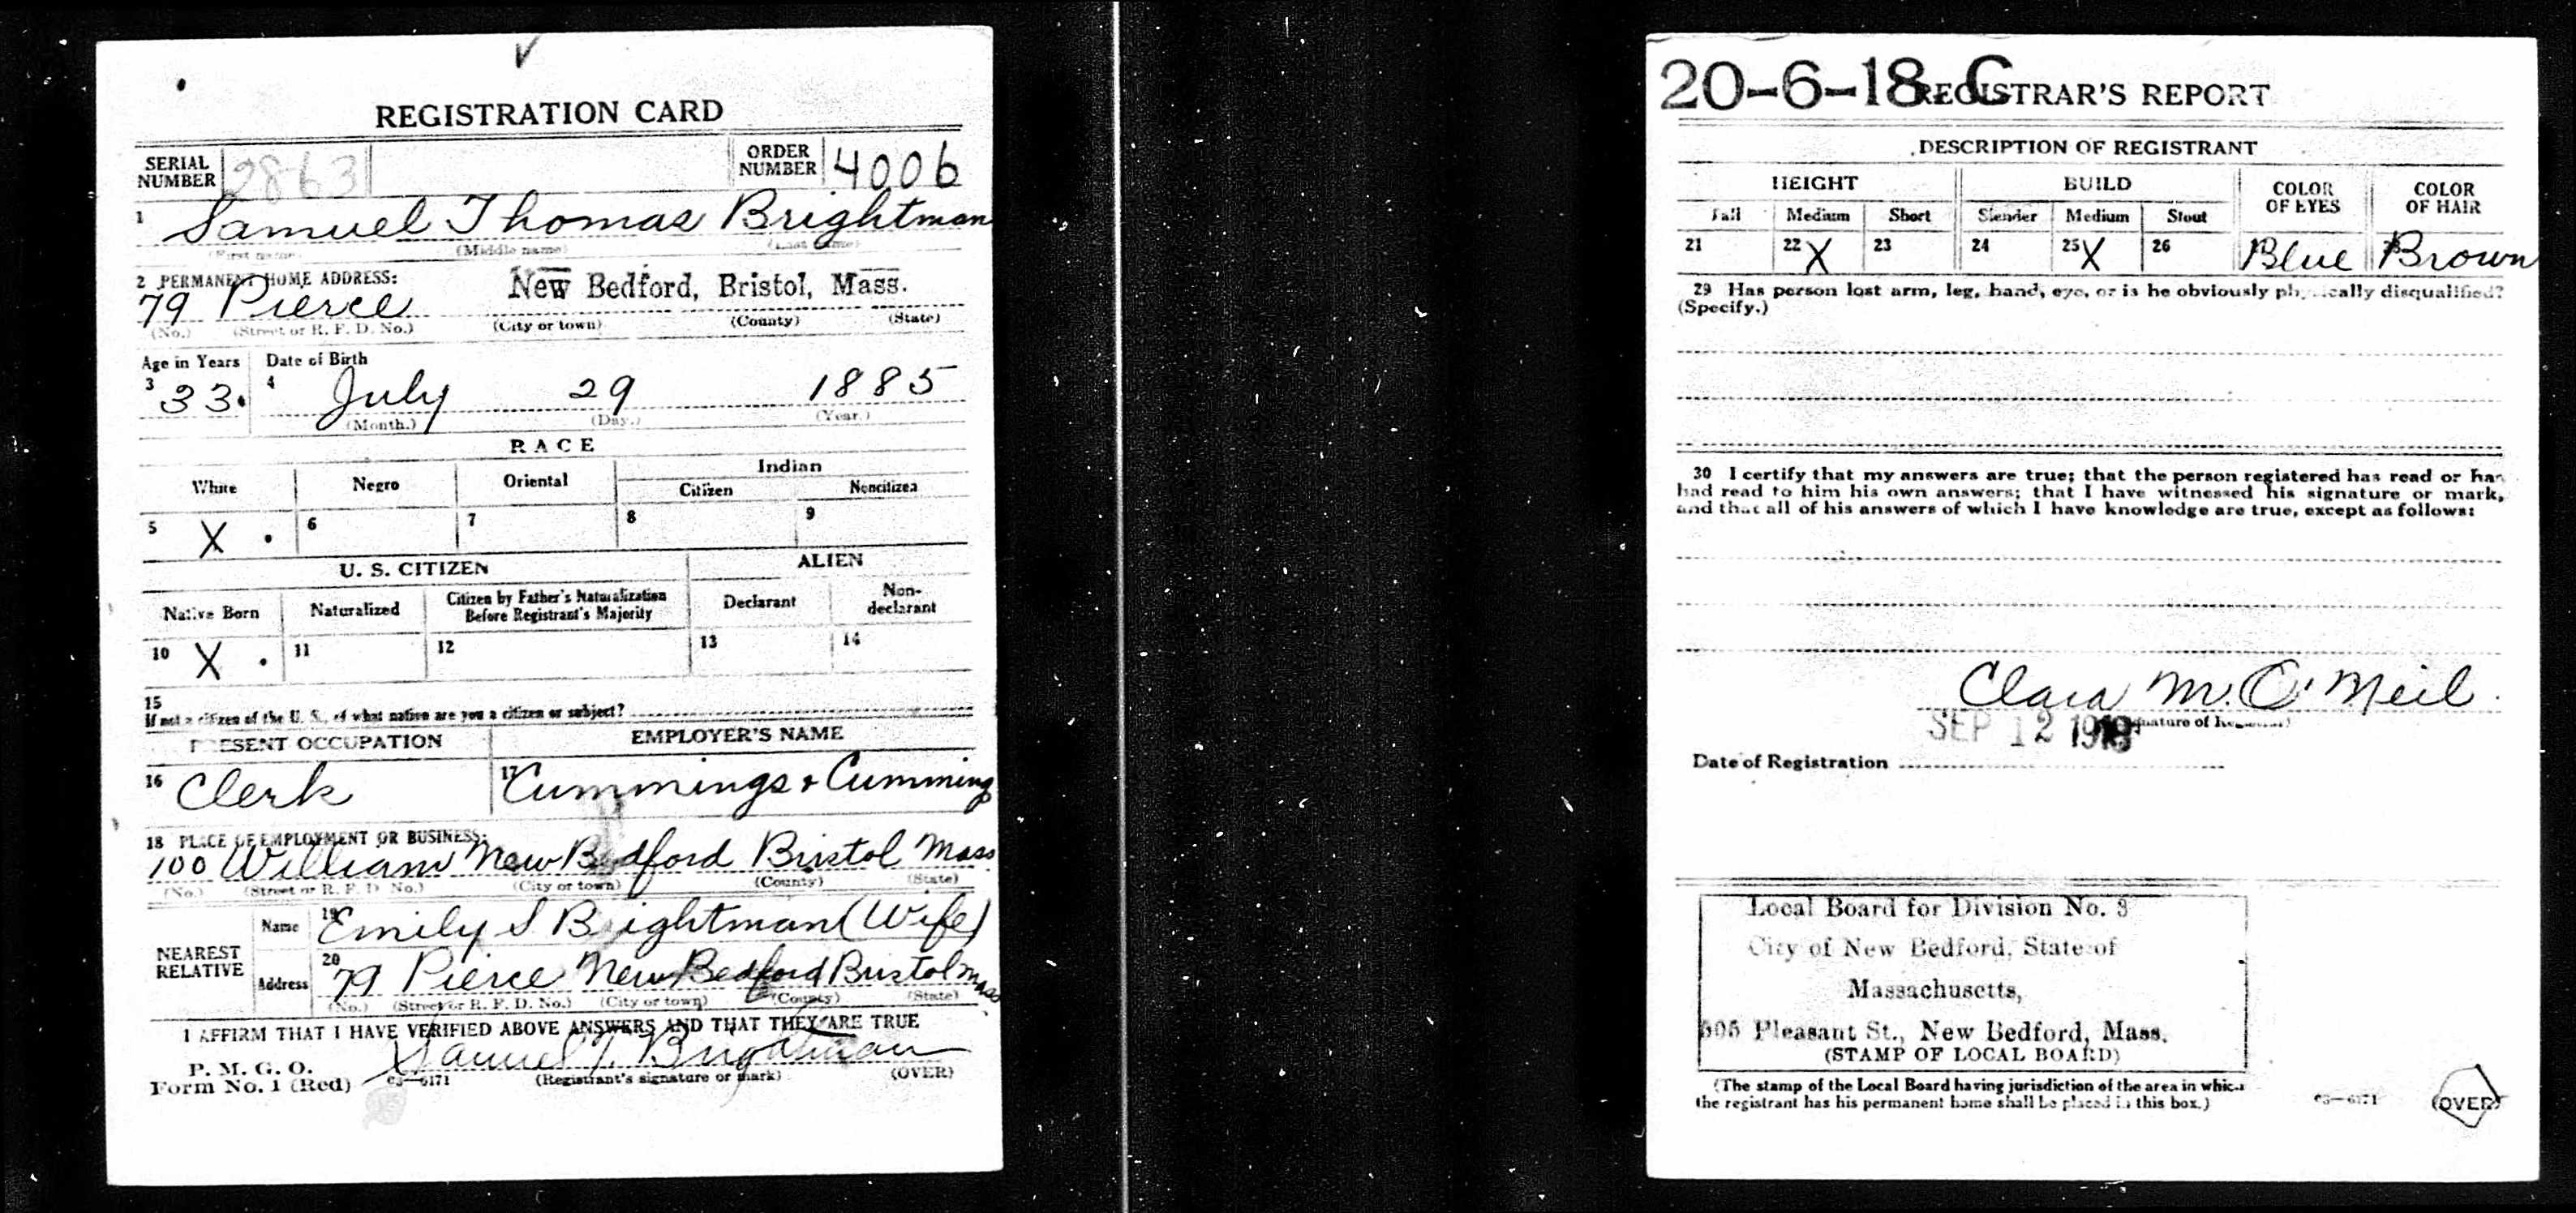 REGISTRATION CARD
SERIAL NUMBER 2863 ORDER NUMBER 4006
1 Samuel Thomas Brightman
(First name) (Middle name) (Last name)
2 PERMANENT HOME ADDRESS:
79 Pierce New Bedford, Bristol, Mass.
(No.) (Street or R. F. D. No.) (City or town) (County) (State)
Age in Years Date of Birth
3 33. 4 July 29 1885
(Month.) (Day.) (Year.)
RACE
White Negro Oriental Indian
Citizen Noncitizen
5 X . 6 7 8 9
U. S. CITIZEN ALIEN
Native Born Naturalized Citizen by Father's Naturalization Before Registrant's Majority Declarant Non-declarant
10 X . 11 12 13 14
15
If not a citizen of the U. S., of what nation are you a citizen or subject?
PRESENT OCCUPATION EMPLOYER'S NAME
16 Clerk 17 Cummings & Cumming
18 PLACE OF EMPLOYMENT OR BUSINESS:
100 William New Bedford Bristol Mass
(No.) (Street or R. F. D. No.) (City or town) (County) (State)
NEAREST RELATIVE
Name 19 Emily S Brightman (Wife)
Address 20 79 Pierce New Bedford Bristol Mass
(No.) (Street or R. F. D. No.) (City or town) (County) (State)
I AFFIRM THAT I HAVE VERIFIED ABOVE ANSWERS AND THAT THEY ARE TRUE
P. M. G. O.
Form No. 1 (Red) 03—6171 Samuel T. Brightman
(Registrant's signature or mark) (OVER)
20-6-18. C REGISTRAR'S REPORT
DESCRIPTION OF REGISTRANT
HEIGHT BUILD COLOR OF EYES COLOR OF HAIR
Tall Medium Short Slender Medium Stout
21 22 X 23 24 25 X 26 Blue Brown
29 Has person lost arm, leg, hand, eye, or is he obviously physically disqualified?
(Specify.)
30 I certify that my answers are true; that the person registered has read or has
had read to him his own answers; that I have witnessed his signature or mark,
and that all of his answers of which I have knowledge are true, except as follows:
Clara M. O'Neil.
(Signature of Registrar)
SEP 12 1918
Date of Registration
Local Board for Division No. 3
City of New Bedford, State of
Massachusetts,
505 Pleasant St., New Bedford, Mass.
(STAMP OF LOCAL BOARD)
(The stamp of the Local Board having jurisdiction of the area in which
the registrant has his permanent home shall be placed in this box.)
03—6171 (OVER)